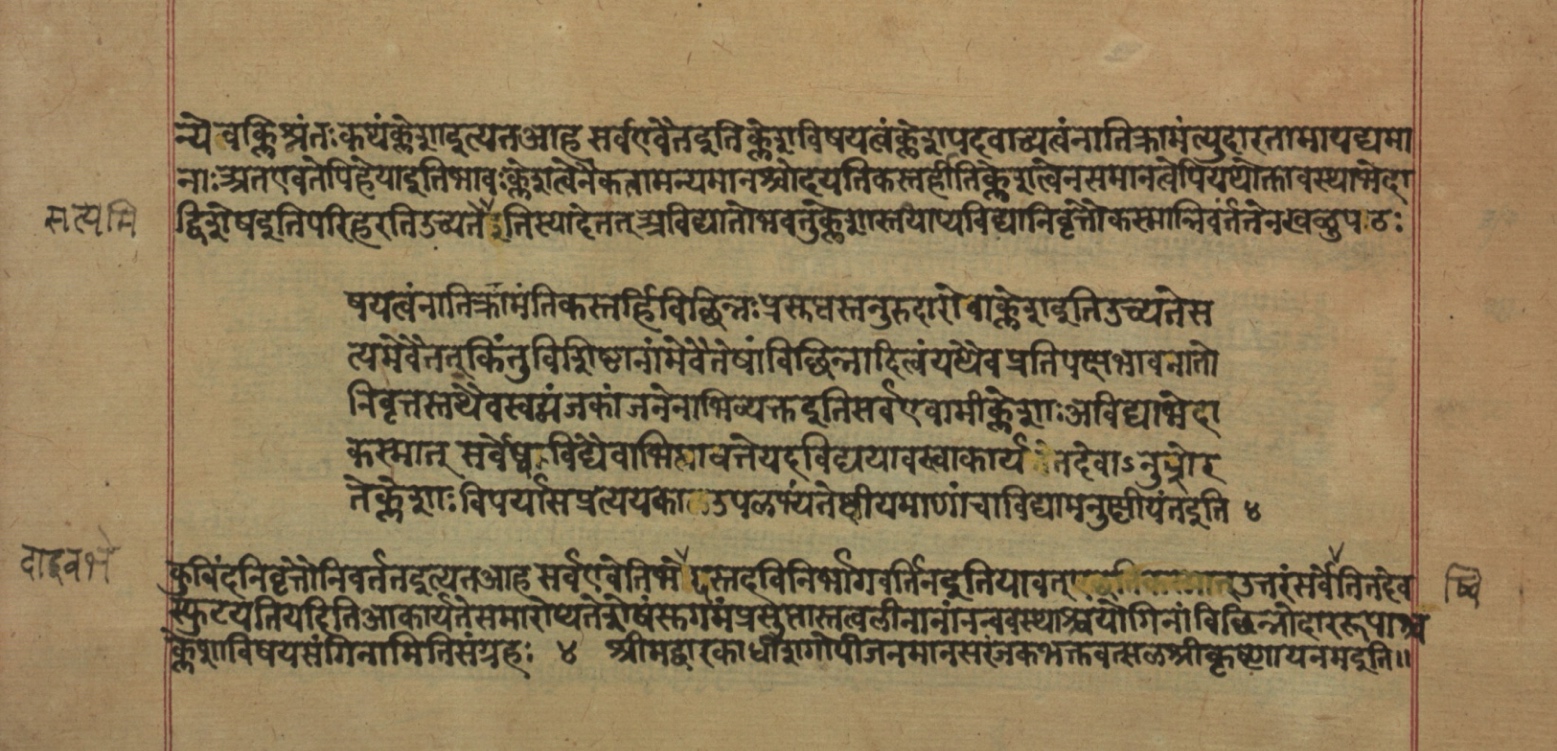 न्ये वक्लिश्नंतः कथंक्लेशाइत्यतआह सर्वएवैतइतिक्लेशविषयत्वंक्लेशपदवाच्यत्वंनातिक्रामंत्युदारतामापद्यमा
नाःअतएवतेपिहेयाइतिभावःक्लेशत्वेनैकतामन्यमानश्चोदयतिकस्तर्हीतिक्लेशत्वेनसमानत्वेपियथोक्तावस्थाभेदा
सत्यमि द्विशेषइतिपरिहरतिउच्यतेइतिस्यादेतत् अविद्यातोभवंतुक्लेशास्तथाप्यविद्यानिवृत्तौकस्मान्निवर्तंतेनखलुपठः
षयत्वंनातिक्रामंतिकस्तर्हिविच्छिन्नःप्रसुप्तस्तनुरुदारोवाक्लेशइतिउच्यतेस
त्यमेवैतत्किंतुविशिष्टानामेवैतेषांविच्छिन्नादित्वंयथैवप्रतिपक्षभावनातो
निवृत्तस्तथैवस्वव्यंजकांजनेनाभिव्यक्तइतिसर्वएवामीक्लेशाःअविद्याभेदा
कस्मात् सर्वेषु अविद्यैवाभिप्लवतेयदविद्ययावस्त्वाकार्यतेतदेवाऽनुशेर
तेक्लेशाःविपर्यासप्रत्ययकालउपलभ्यंतेक्षीयमाणांचाविद्यामनुक्षीयंतइति ४
दाइवभे कुविंदनिवृत्तौनिवर्ततइत्यतआह सर्वएवेतिभेदस्तदविनिर्भागवर्तिनइतियावत् उत्तरंसर्वेतितदेव ष्वि
स्फुटयतियदितिआकार्यतेसमारोप्यतेशेषंसुगमंप्रसुप्तास्तत्वलीनानांतन्ववस्थाश्चयोगिनांविच्छिन्नोदाररूपाश्च
क्लेशाविषयसंगिनामितिसंग्रहः ४ श्रीमद्द्वारकाधीशगोपीजनमानसरंजकभक्तवत्सलश्रीकृष्णायनमइति॥